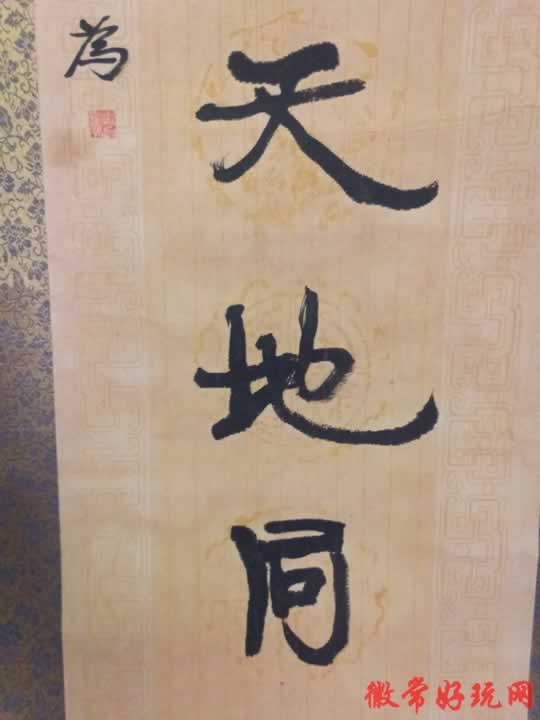 天地同
為
微常好玩网